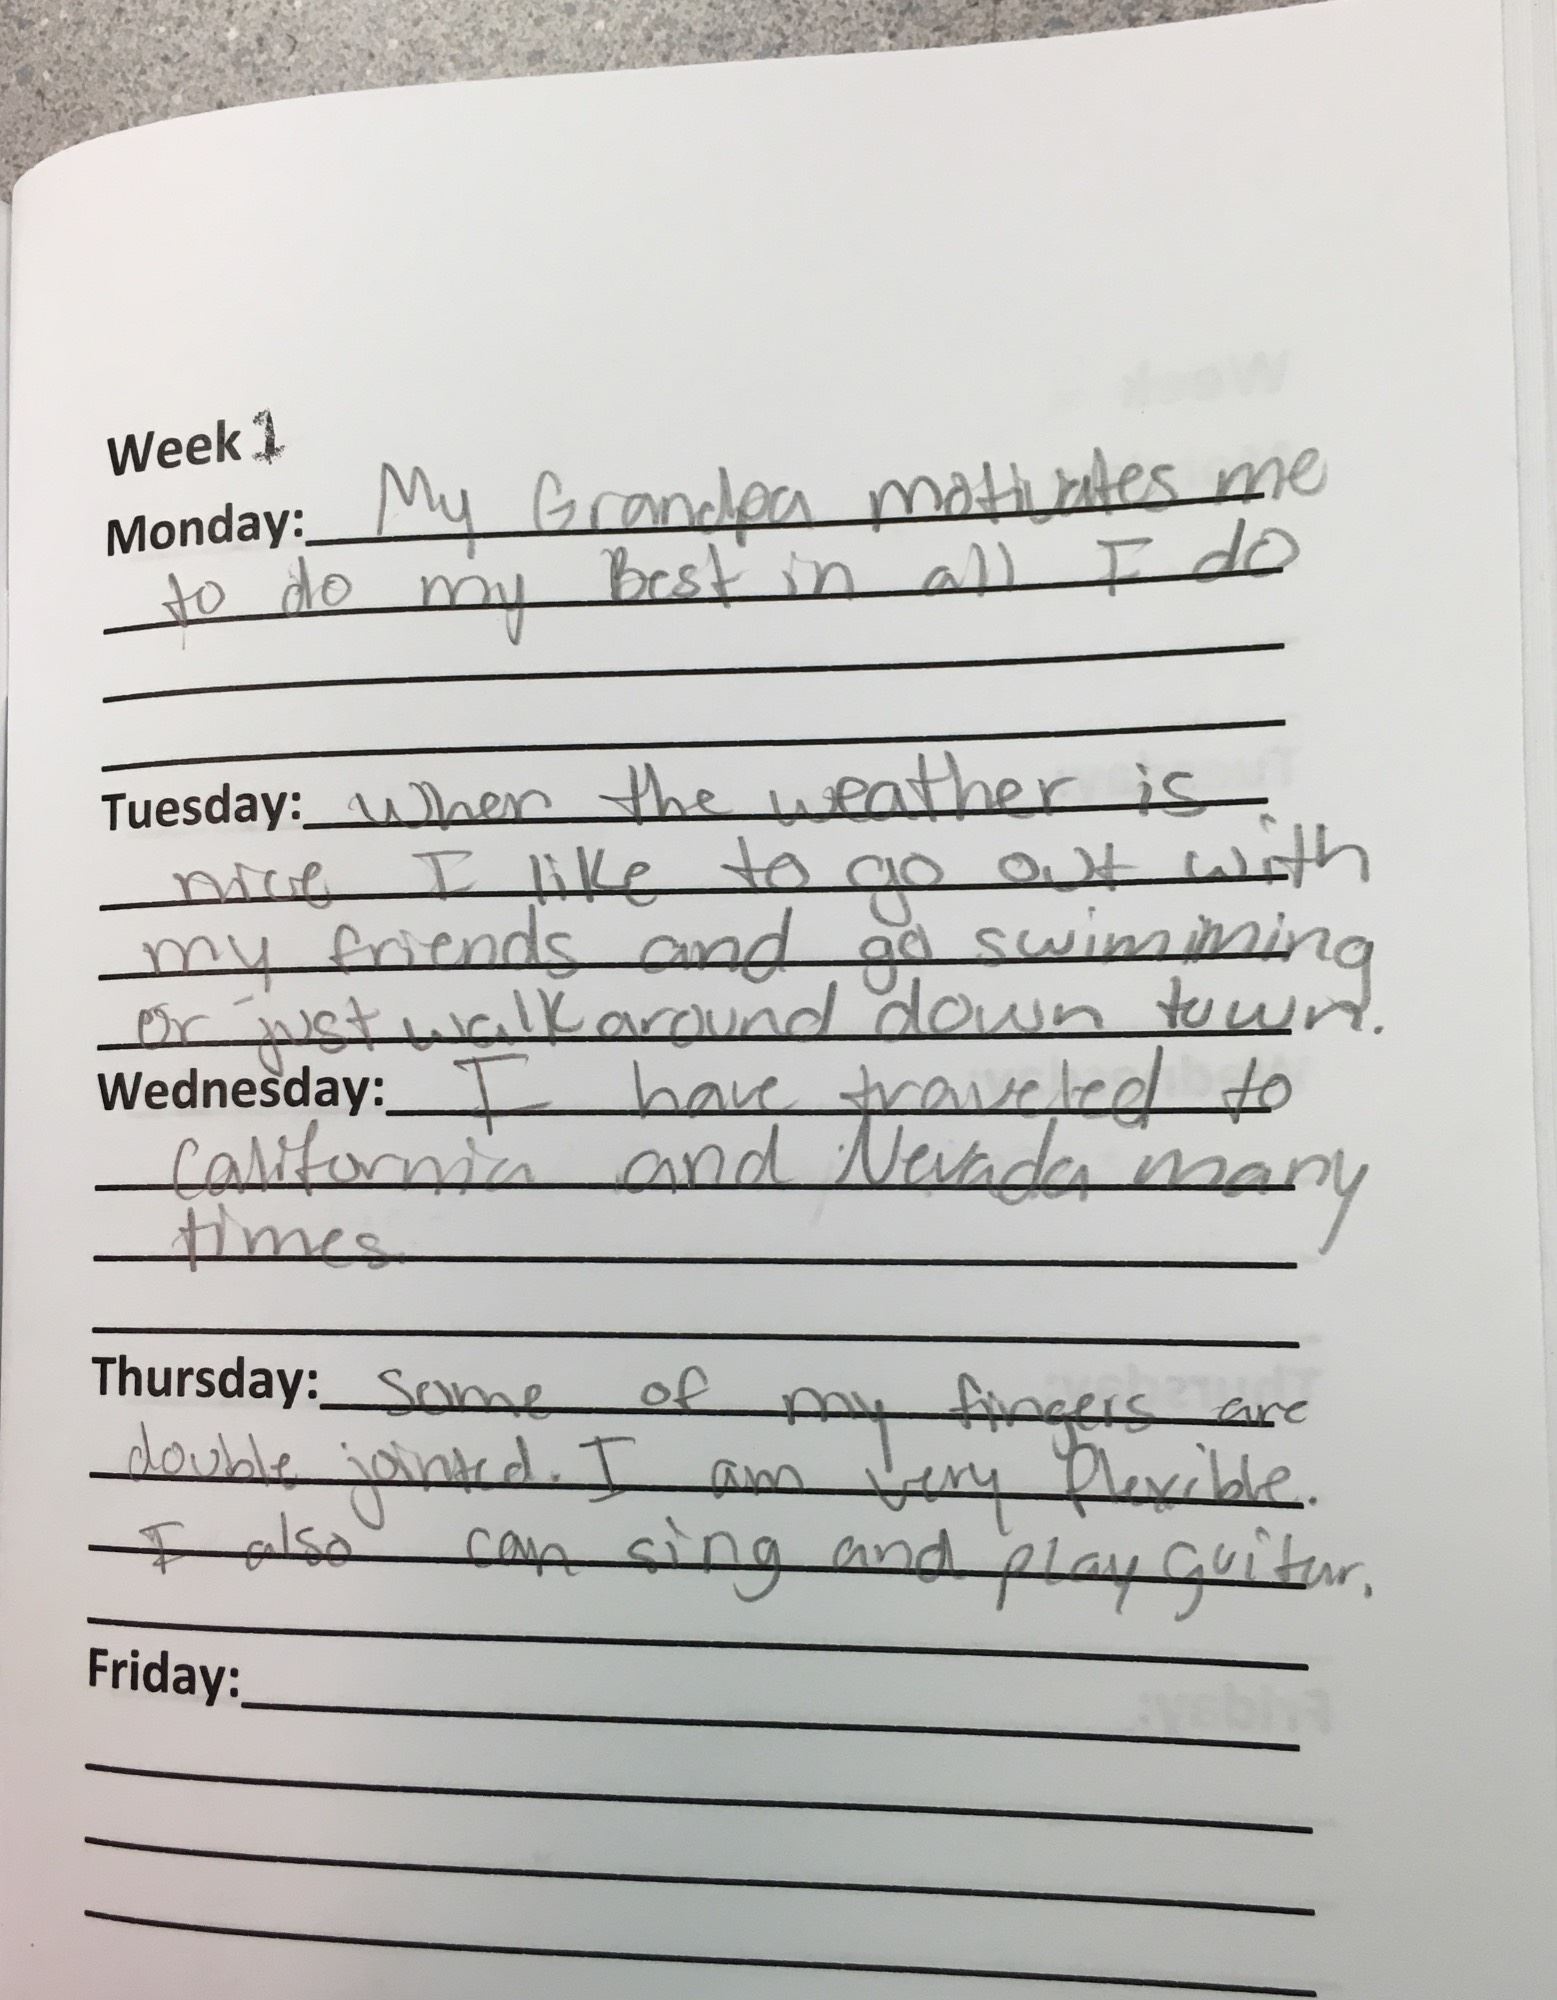 Week 1
Monday: My Grandpa motivates me
to do my Best in all I do
Tuesday: When the weather is
nice I like to go out with
my friends and go swimming
or just walk around down town.
Wednesday: I have traveled to
California and Nevada many
times.
Thursday: Some of my fingers are
double jointed. I am very flexible.
I also can sing and play guitar.
Friday: